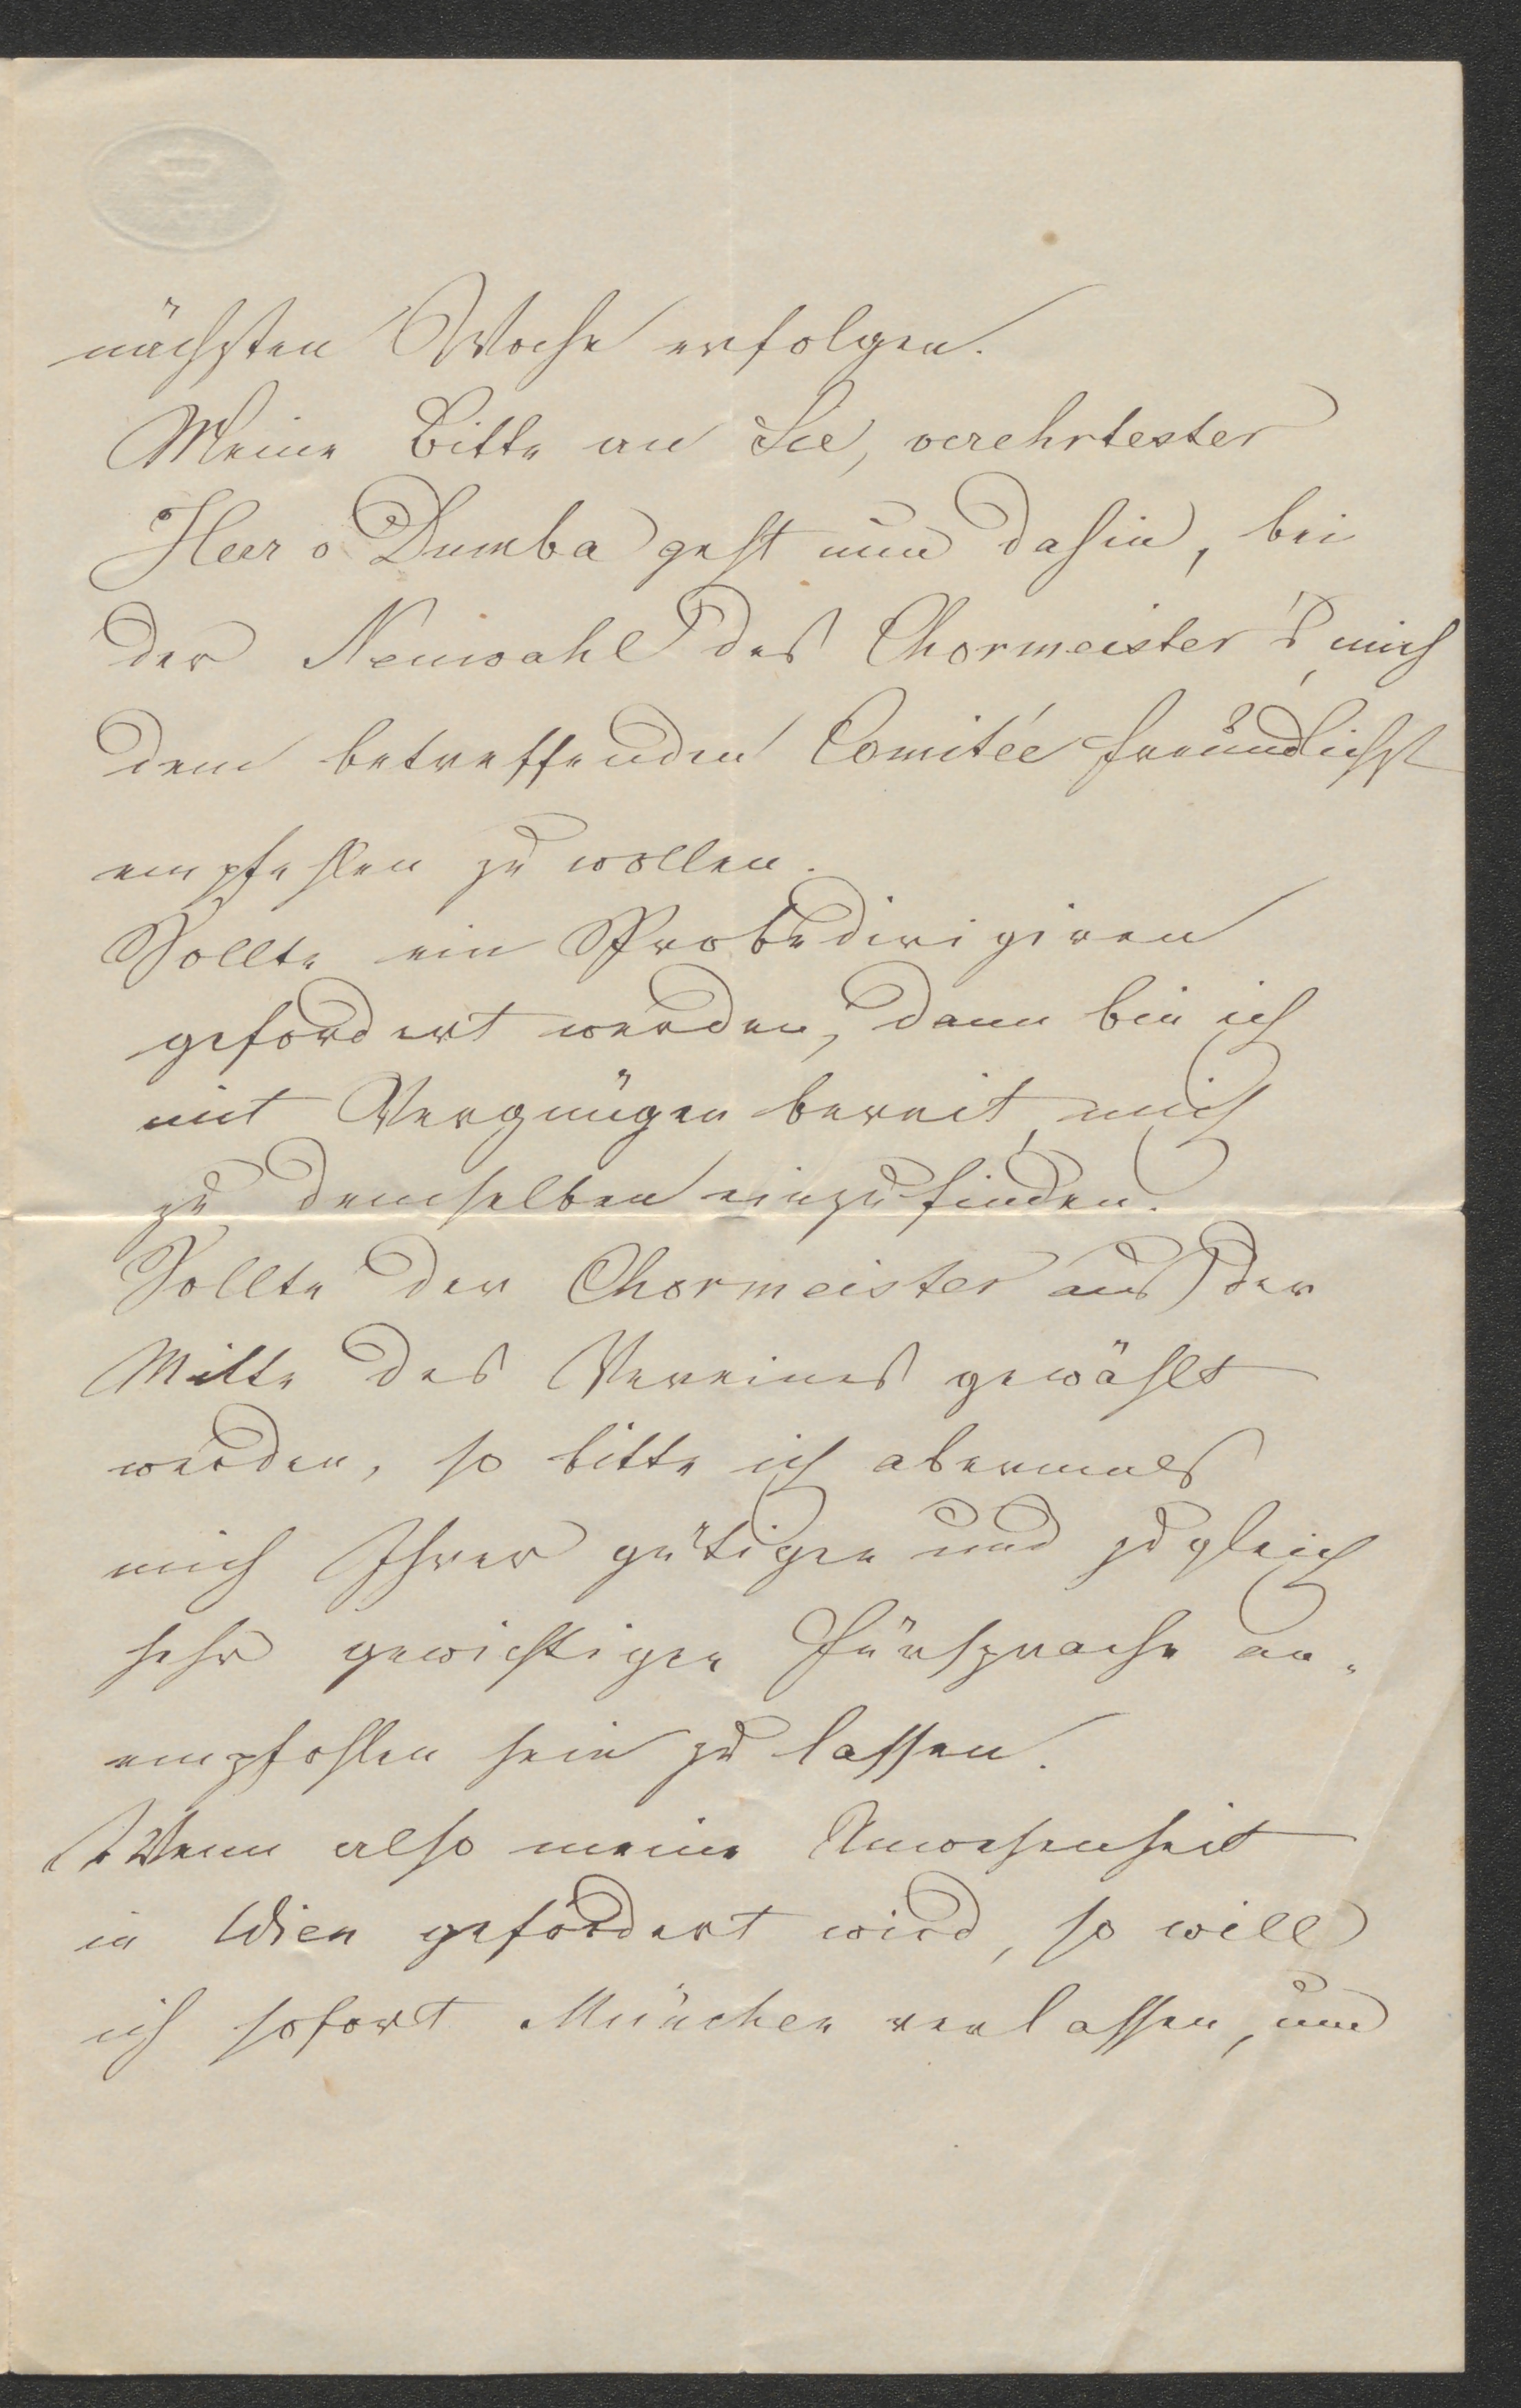 nächsten Woche erfolgen.
Meine Bitte an Sie, verehrtester
Herr v Dumba geht nun dahin, bei
der Neuwahl des Chormeister's, mich
dem betreffenden Comitée freundlichst
empfehlen zu wollen.
Sollte ein Probedirigiren
gefordert werden, dann bin ich
mit Vergnügen bereit, mich
zu demselben einzufinden.
Sollte der Chormeister aus der
Mitte des Vereines gewählt
werden, so bitte ich abermals
mich Ihrer gütigen und zugleich
sehr gewichtigen Fürsprache an-
empfohlen sein zu lassen.
Wenn also meine Anwesenheit
in Wien gefordert wird, so will
ich sofort München verlassen, um